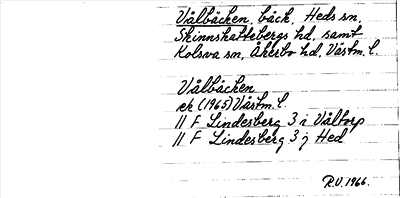 Vålbäcken, bäck, Heds sn,
Skinnskattebergs hd, samt
Kolsva sn, Åkerbo hd, Västm. l.
Vålbäcken
ek (1965) Västm. l.
11 F Lindesberg 3 i Våltorp
11 F Lindesberg 3 j Hed
R.U. 1966.